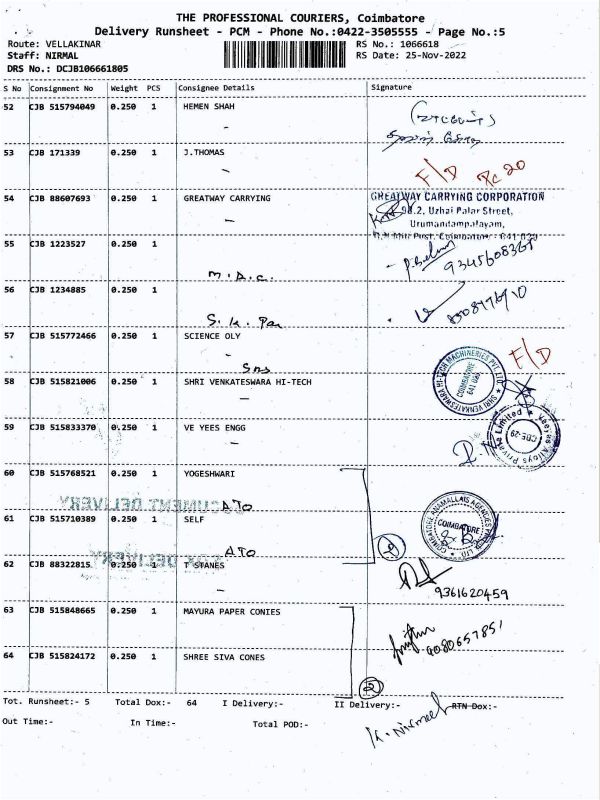 THE PROFESSIONAL COURIERS, Coimbatore
Delivery Runsheet - PCM - Phone No.:0422-3505555 - Page No.:5
Route: VELLAKINAR RS No.: 1066618
Staff: NIRMAL RS Date: 25-Nov-2022
DRS No.: DCJB106661805
S No Consignment No Weight PCS Consignee Details Signature
52 CJB 515794049 0.250 1 HEMEN SHAH
53 CJB 171339 0.250 1 J.THOMAS
F/D
54 CJB 88607693 0.250 1 GREATWAY CARRYING
GREATWAY CARRYING CORPORATION
Uzhai Palar Street,
Urumandampalayam,
55 CJB 1223527 0.250 1
M.A.C.
56 CJB 1234885 0.250 1
57 CJB 515772466 0.250 1 SCIENCE OLY
Sns
F/D
58 CJB 515821006 0.250 1 SHRI VENKATESWARA HI-TECH
SHRI VENKATESWARA HI-TECH MACHINERIES PVT LTD
COIMBATORE
59 CJB 515833370 0.250 1 VE YEES ENGG
Veeyes Alloys Private Limited
CBE-29
60 CJB 515768521 0.250 1 YOGESHWARI
ATO
DOCUMENT DELIVERY
61 CJB 515710389 0.250 1 SELF
ATO
COIMBATORE ANAMALLAIS AGENCIES PVT. LTD.
COIMBATORE
62 CJB 88322815 0.250 1 T STANES
9361620459
63 CJB 515848665 0.250 1 MAYURA PAPER CONIES
9080657851
64 CJB 515824172 0.250 1 SHREE SIVA CONES
2
Tot. Runsheet:- 5 Total Dox:- 64 I Delivery:- II Delivery:- RTN Dox:-
Out Time:- In Time:- Total POD:-
K. Nirmal